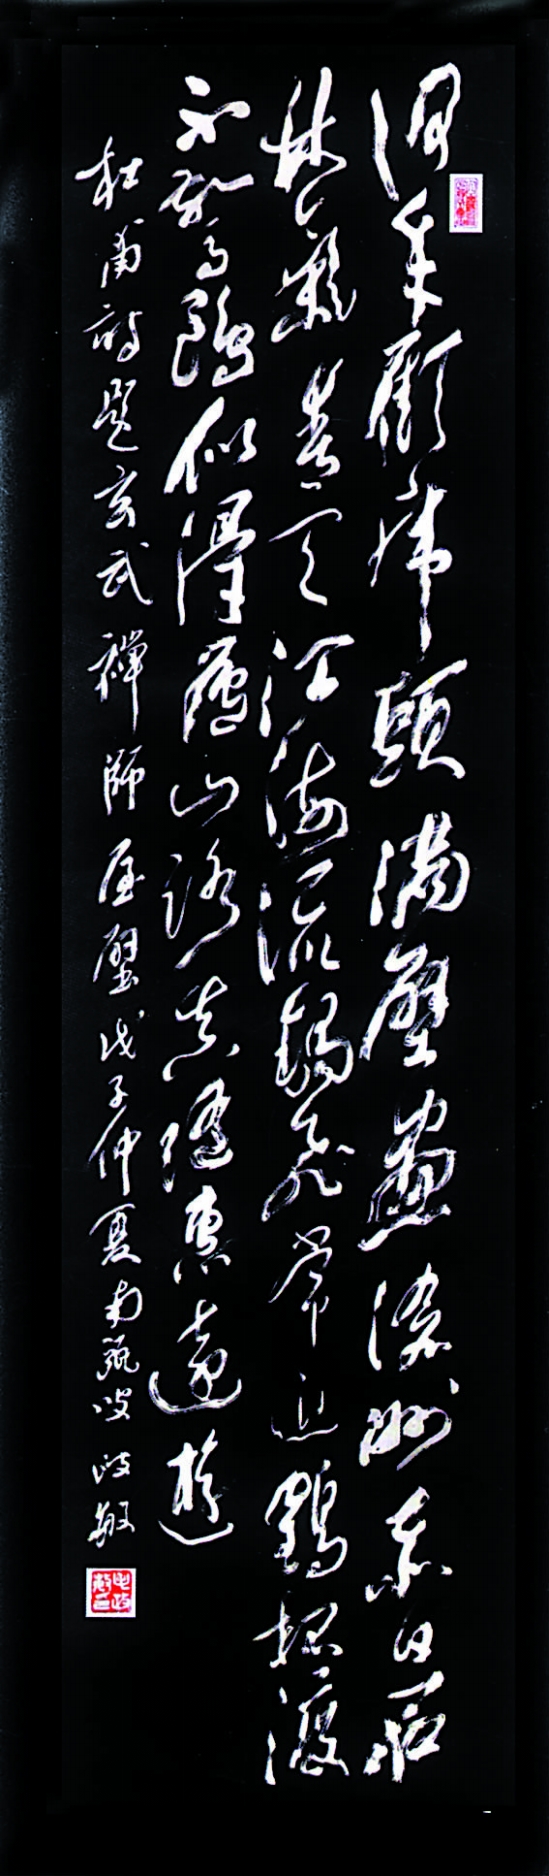 何年顧虎頭滿壁畫滄洲赤日石
林氣青天江海流錫飛常近鶴杯渡
不驚鷗似得廬山路真隨惠遠遊
杜甫詩題玄武禪師屋壁戊子仲夏南